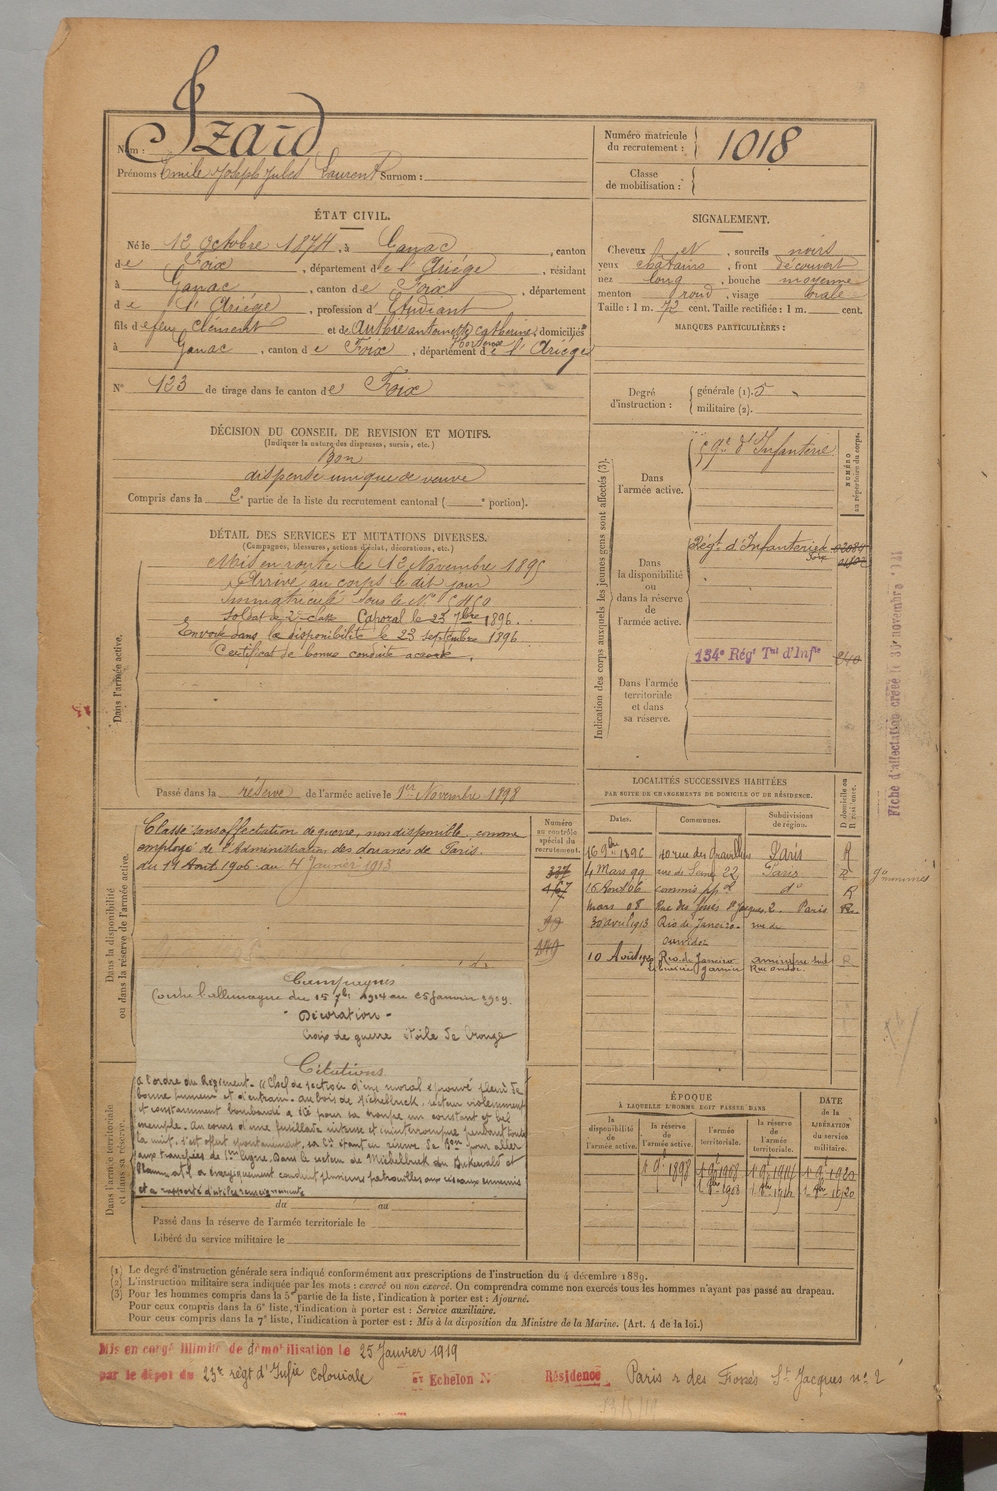 Nom : Izard
Prénoms Emile Joseph Jules Laurent Surnom :
Numéro matricule du recrutement : 1018
Classe de mobilisation :
ÉTAT CIVIL.
Né le 12 Octobre 1874, à Ganac, canton
de Foix, département de l'Ariège, résidant
à Ganac, canton de Foix, département
de l'Ariège, profession d'Etudiant
fils de feu Clément et de antoinette catherine, domiciliés
à Ganac, canton de Foix, département de l'Ariège
N° 123 de tirage dans le canton de Foix
SIGNALEMENT.
Cheveux et, sourcils noirs
yeux châtains, front découvert
nez long, bouche moyenne
menton rond, visage ovale
Taille : 1 m. 72 cent. Taille rectifiée : 1 m. cent.
MARQUES PARTICULIÈRES :
Degré d'instruction : générale (1). 5
militaire (2).
DÉCISION DU CONSEIL DE REVISION ET MOTIFS.
(Indiquer la nature des dispenses, sursis, etc.)
Bon
dispensé unique de veuve
Compris dans la 2e partie de la liste du recrutement cantonal ( e portion).
DÉTAIL DES SERVICES ET MUTATIONS DIVERSES.
(Campagnes, blessures, actions d'éclat, décorations, etc.)
Dans l'armée active.
Mis en route le 12 Novembre 1895
Arrivé au corps le dit jour
immatriculé sous le N°
Soldat de 2e classe Caporal le 23 7bre 1896.
Envoyé dans la disponibilité le 23 septembre 1896
Certificat de bonne conduite accordé.
Passé dans la réserve de l'armée active le 1er Novembre 1898
Indication des corps auxquels les jeunes gens sont affectés (3).
NUMÉRO au répertoire du corps.
Dans l'armée active.
59e d'Infanterie
Dans la disponibilité ou dans la réserve de l'armée active.
Régt d'Infanterie de Foix
134e Régt Tal d'Infie
Dans l'armée territoriale et dans sa réserve.
Fiche d'affectation créée le 30 novembre
Dans la disponibilité ou dans la réserve de l'armée active.
Classé sans affectation de guerre, non disponible, comme
employé de l'Administration des douanes de Paris.
du 14 Aout 1906 au 4 Janvier 1913
Numéro au contrôle spécial du recrutement.
LOCALITÉS SUCCESSIVES HABITÉES
PAR SUITE DE CHANGEMENTS DE DOMICILE OU DE RÉSIDENCE.
D domicile ou R résidence.
Dates. Communes. Subdivisions de région.
16 9bre 1896 10 rue des Paris R
4 Mars 99 rue de Seine 22 Paris R
15 Aout 06 commis ppal do R
Mars 08 Rue des Fossés St Jacques 2. Paris R
30 avril 1913 Rio de Janeiro - rue do
ouvidor
10 Août Rio de Janeiro Amérique Sud R
Librairie Garnier Rue ouvidor
Campagnes
Contre l'allemagne du 15 7bre 1914 au 25 janvier 1919.
- Décoration -
Croix de guerre étoile de bronze
Citations
à l'ordre du Régiment - "Chef de section d'un moral éprouvé plein de
bonne humeur et d'entrain. Au bois de Michelbruck, secteur violemment
et constamment bombardé a été pour sa troupe un constant et bel
exemple. Au cours d'une fusillade intense et ininterrompue pendant toute
la nuit, s'est offert spontanément, sa Cie étant en réserve de Bon pour aller
aux tranchées de 1ere ligne. Dans le secteur de Michelbruck du Bukewald et
a énergiquement conduit plusieurs patrouilles aux réseaux ennemis
et a rapporté d'utiles renseignements
Dans l'armée territoriale et dans sa réserve.
du au
Passé dans la réserve de l'armée territoriale le
Libéré du service militaire le
ÉPOQUE
À LAQUELLE L'HOMME DOIT PASSER DANS
DATE de la LIBÉRATION du service militaire.
la disponibilité de l'armée active. la réserve de l'armée active. l'armée territoriale. la réserve de l'armée territoriale.
1 9e 1898 1 9e 1908 1 9e 1914 1 9e 1920
1 8bre 1908 1 8bre 1914 1 8bre 1920
(1) Le degré d'instruction générale sera indiqué conformément aux prescriptions de l'instruction du 4 décembre 1889.
(2) L'instruction militaire sera indiquée par les mots : exercé ou non exercé. On comprendra comme non exercés tous les hommes n'ayant pas passé au drapeau.
(3) Pour les hommes compris dans la 5e partie de la liste, l'indication à porter est : Ajourné.
Pour ceux compris dans la 6e liste, l'indication à porter est : Service auxiliaire.
Pour ceux compris dans la 7e liste, l'indication à porter est : Mis à la disposition du Ministre de la Marine. (Art. 4 de la loi.)
Mis en congé illimité de démobilisation le 25 Janvier 1919
par le dépôt du 23e régt d'Infie Coloniale Echelon N Résidence Paris r des Fossés St Jacques no 2